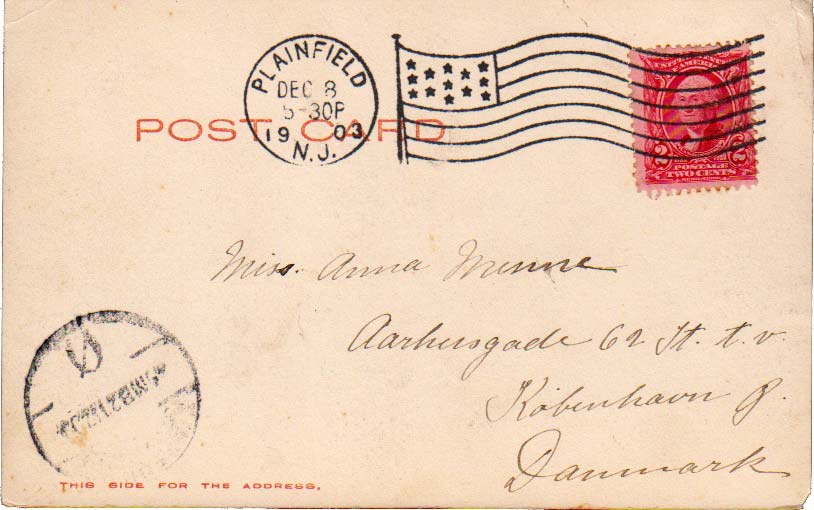 PLAINFIELD
DEC 8
5-30P
19 03
N.J.
POST CARD
POSTAGE
2 2
TWO CENTS
Miss. Anna Menne
Aarhusgade 62 St. t. v.
København Ø.
Danmark
THIS SIDE FOR THE ADDRESS.